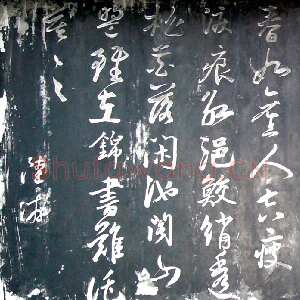 春如舊人空瘦
淚痕紅浥鮫綃透
桃花落閑池閣山
盟雖在錦書難託
莫莫